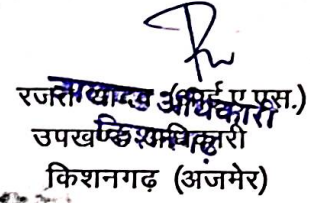 रजत यादव (आई.ए.एस.)
उपखण्ड अधिकारी
किशनगढ़ (अजमेर)